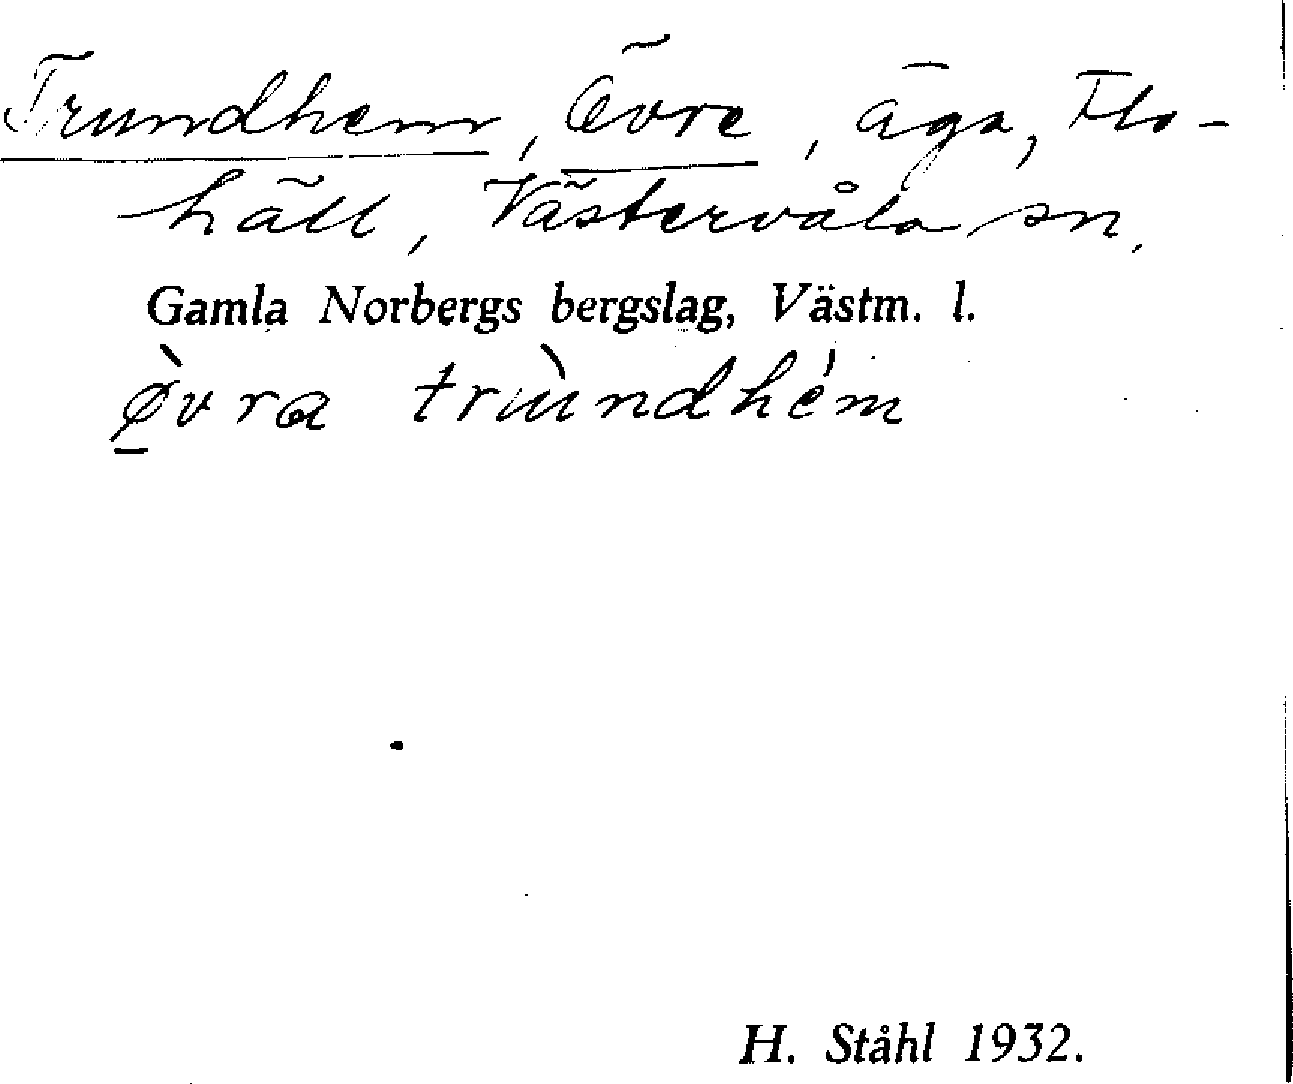 Trundhem, Övre, äga, Flo-
häll, Västervåla sn.
Gamla Norbergs bergslag, Västm. l.
ø̠̀vra trùndhém
H. Ståhl 1932.